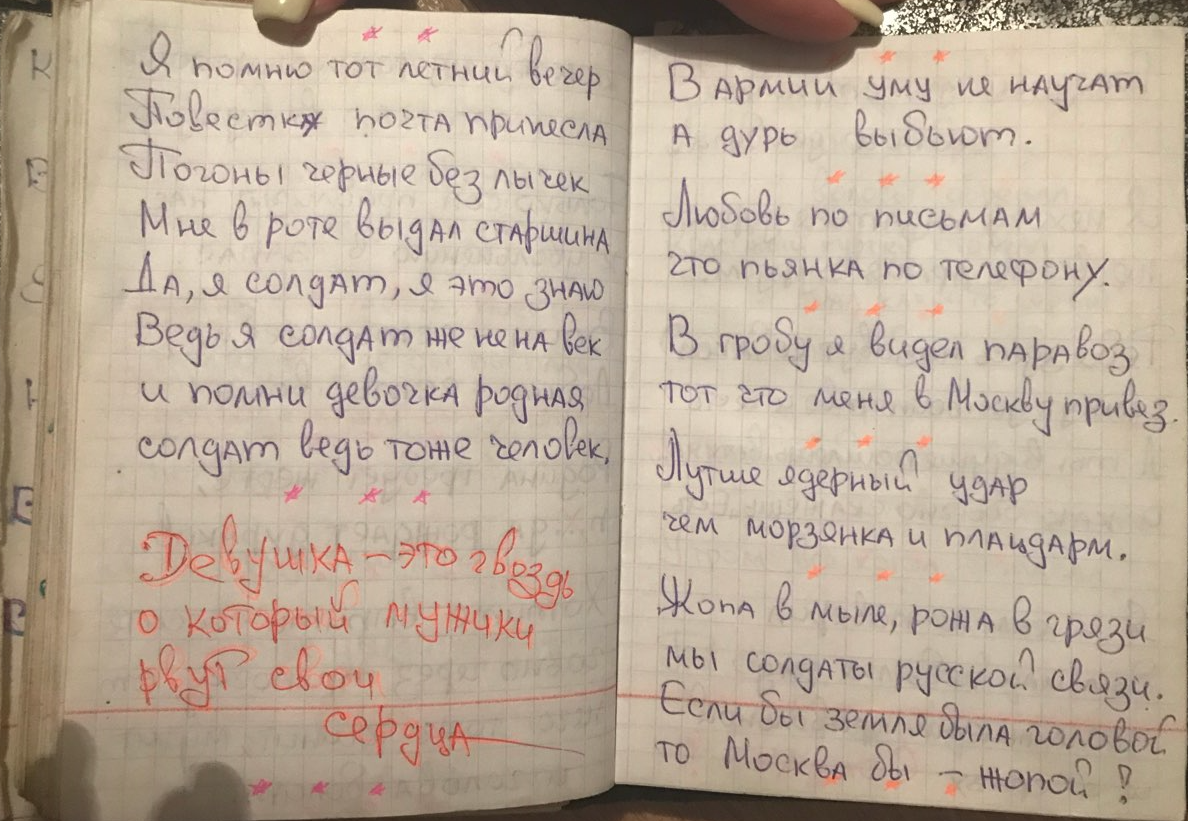 * *
Я помню тот летний вечер
Повестку почта принесла
Погоны черные без лычек
Мне в роте выдал старшина
Да, я солдат, я это знаю
Ведь я солдат же не на век
и помни девочка родная
солдат ведь тоже человек,
* * *
Девушка – это гвоздь
о который мужики
рвут свои
сердца
* * *
* *
В армии уму не научат
а дурь выбьют.
* * *
Любовь по письмам
что пьянка по телефону.
* * *
В гробу я видел паравоз
тот что меня в Москву привез.
* * *
Лутше ядерный удар
чем морзянка и плацдарм.
* * *
Жопа в мыле, рожа в грязи
мы солдаты русской связи.
Если бы земля была головой
то Москва бы – жопой!
* * *
К
Е
Э
Н
Е
Р